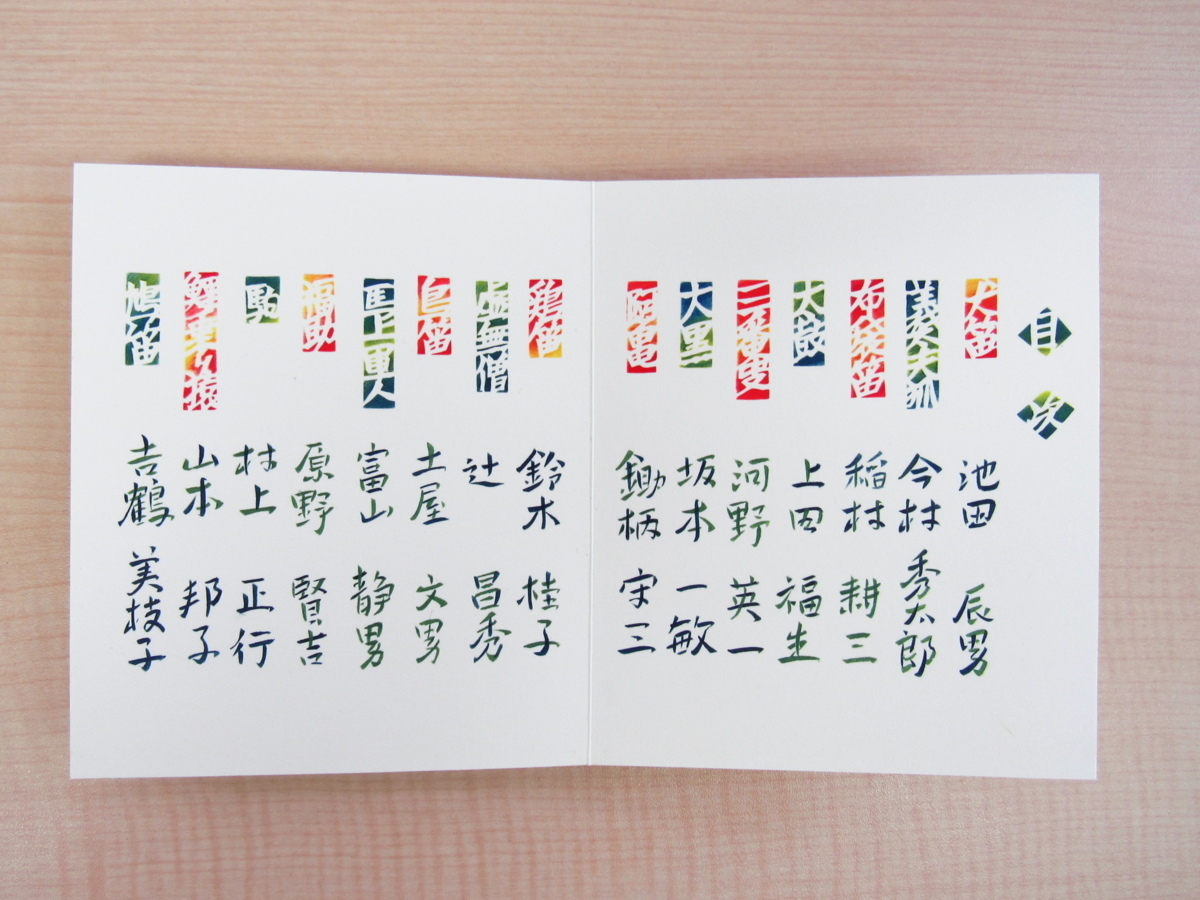 目次
犬笛 池田 辰男
義太夫狐 今村 秀太郎
布袋笛 稲村 耕三
太鼓 上田 福生
三番叟 河野 英一
大黒 坂本 一敏
鋤柄 守三
鶏笛 鈴木 桂子
虚無僧 辻 昌秀
鳥笛 土屋 文男
馬上軍人 富山 静男
福助 原野 賢吉
駒 村上 正行
鯉乗り猿 山本 邦子
鳩笛 吉鶴 美枝子